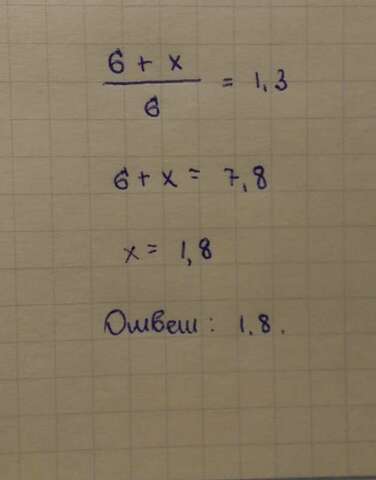 6 + x
6
= 1,3
6 + x = 7,8
x = 1,8
Ответ: 1.8.